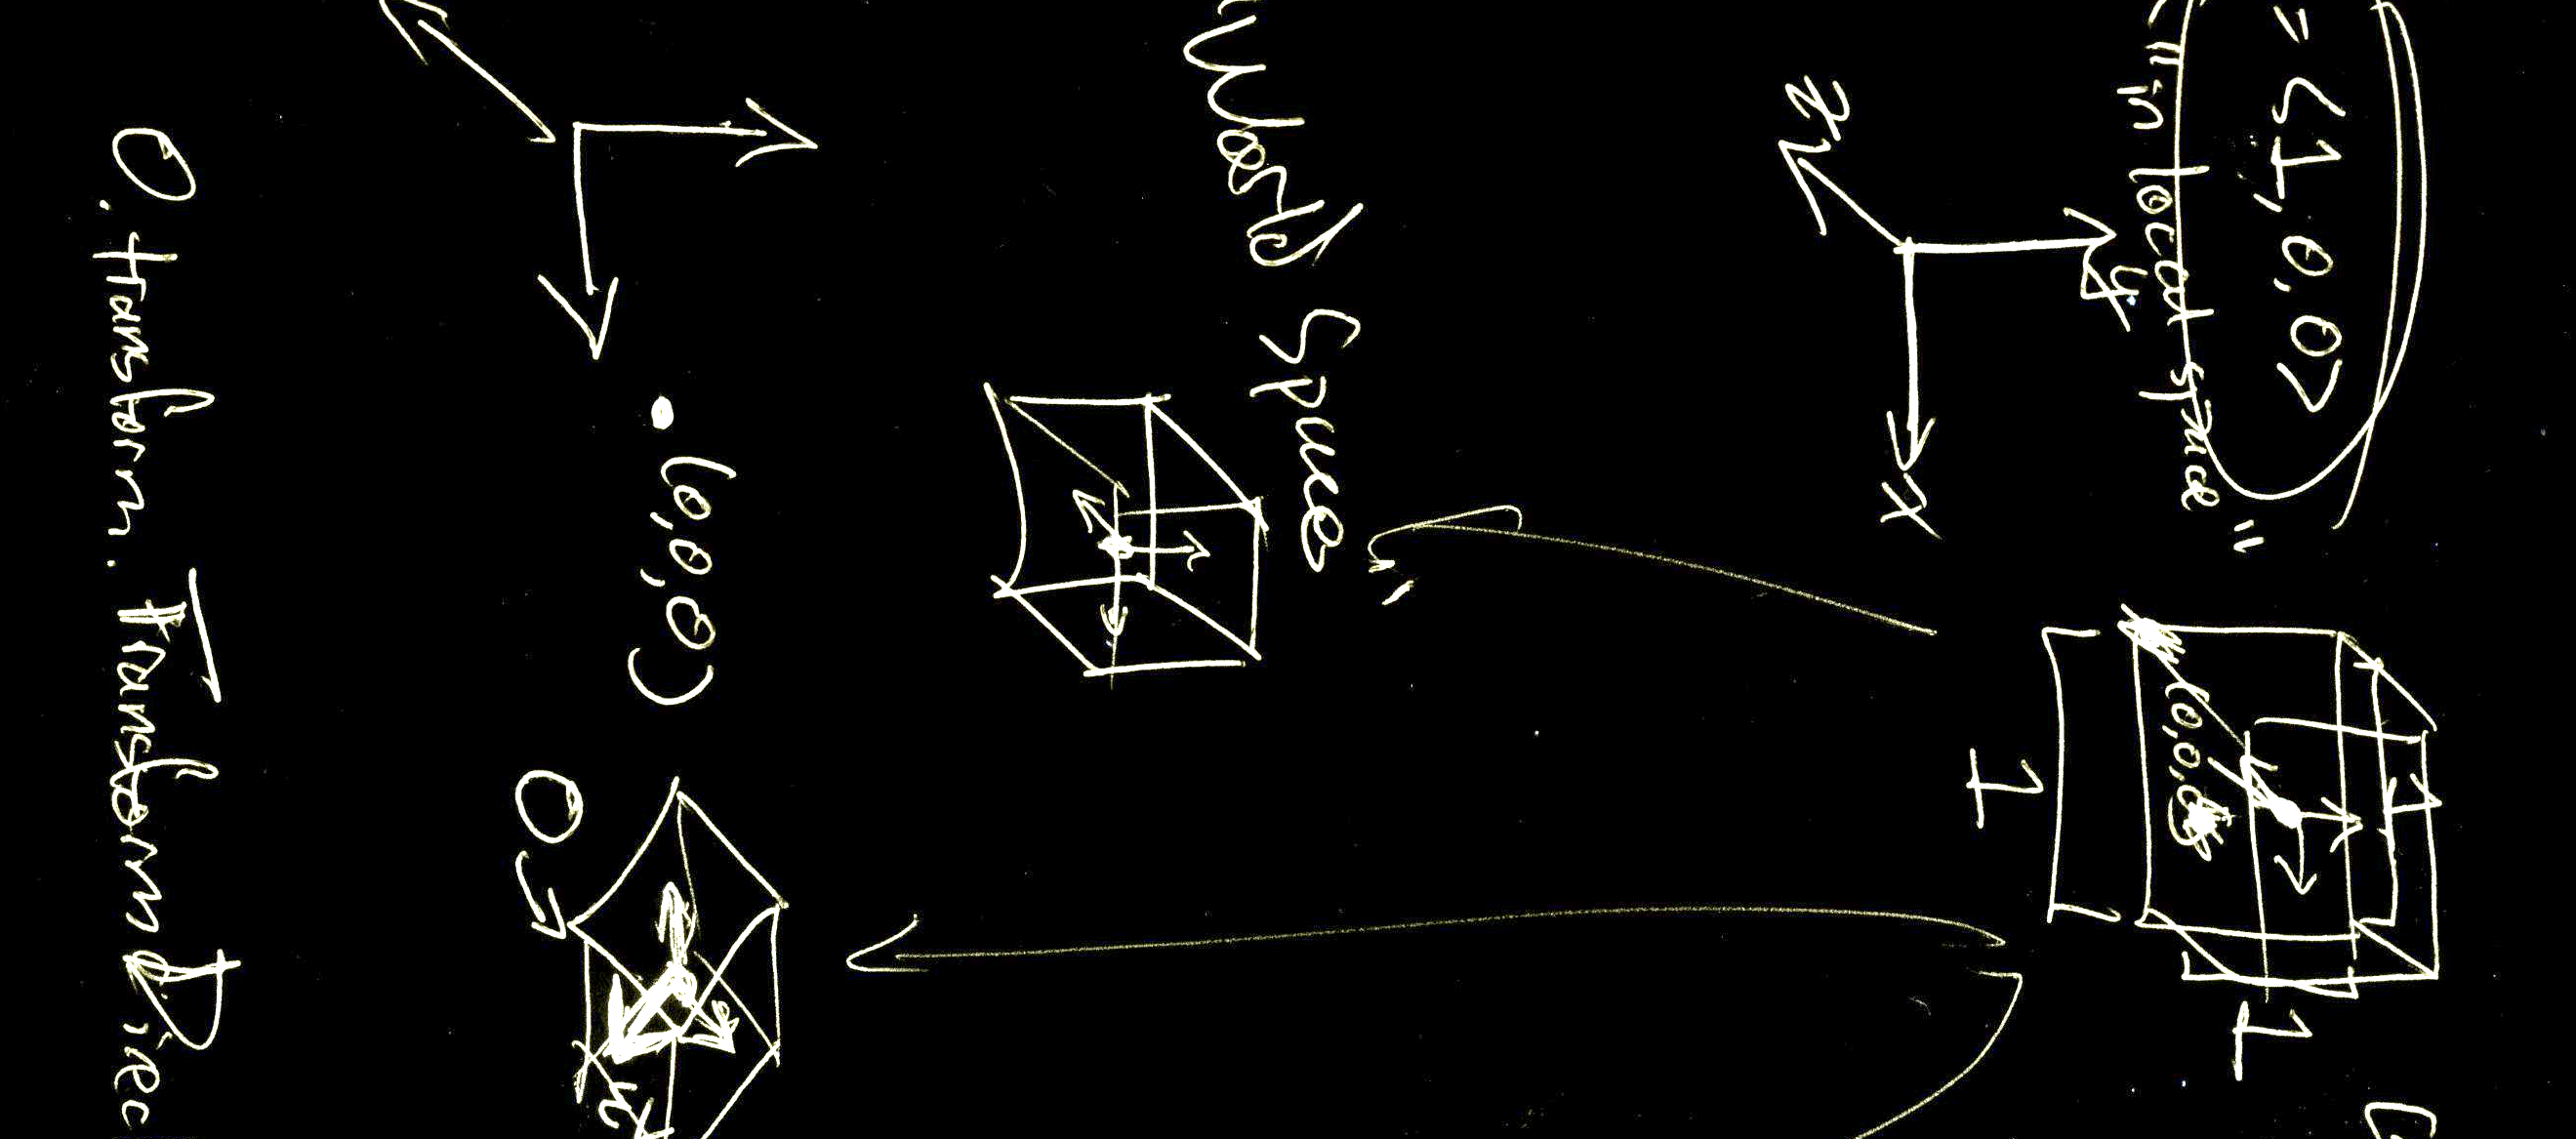 = <1,0,0>
"in local space"
y
z
x
(0,0,0)
1
1
1
"World Space"
(0,0,0)
O
x
O.transform.TransformDirec